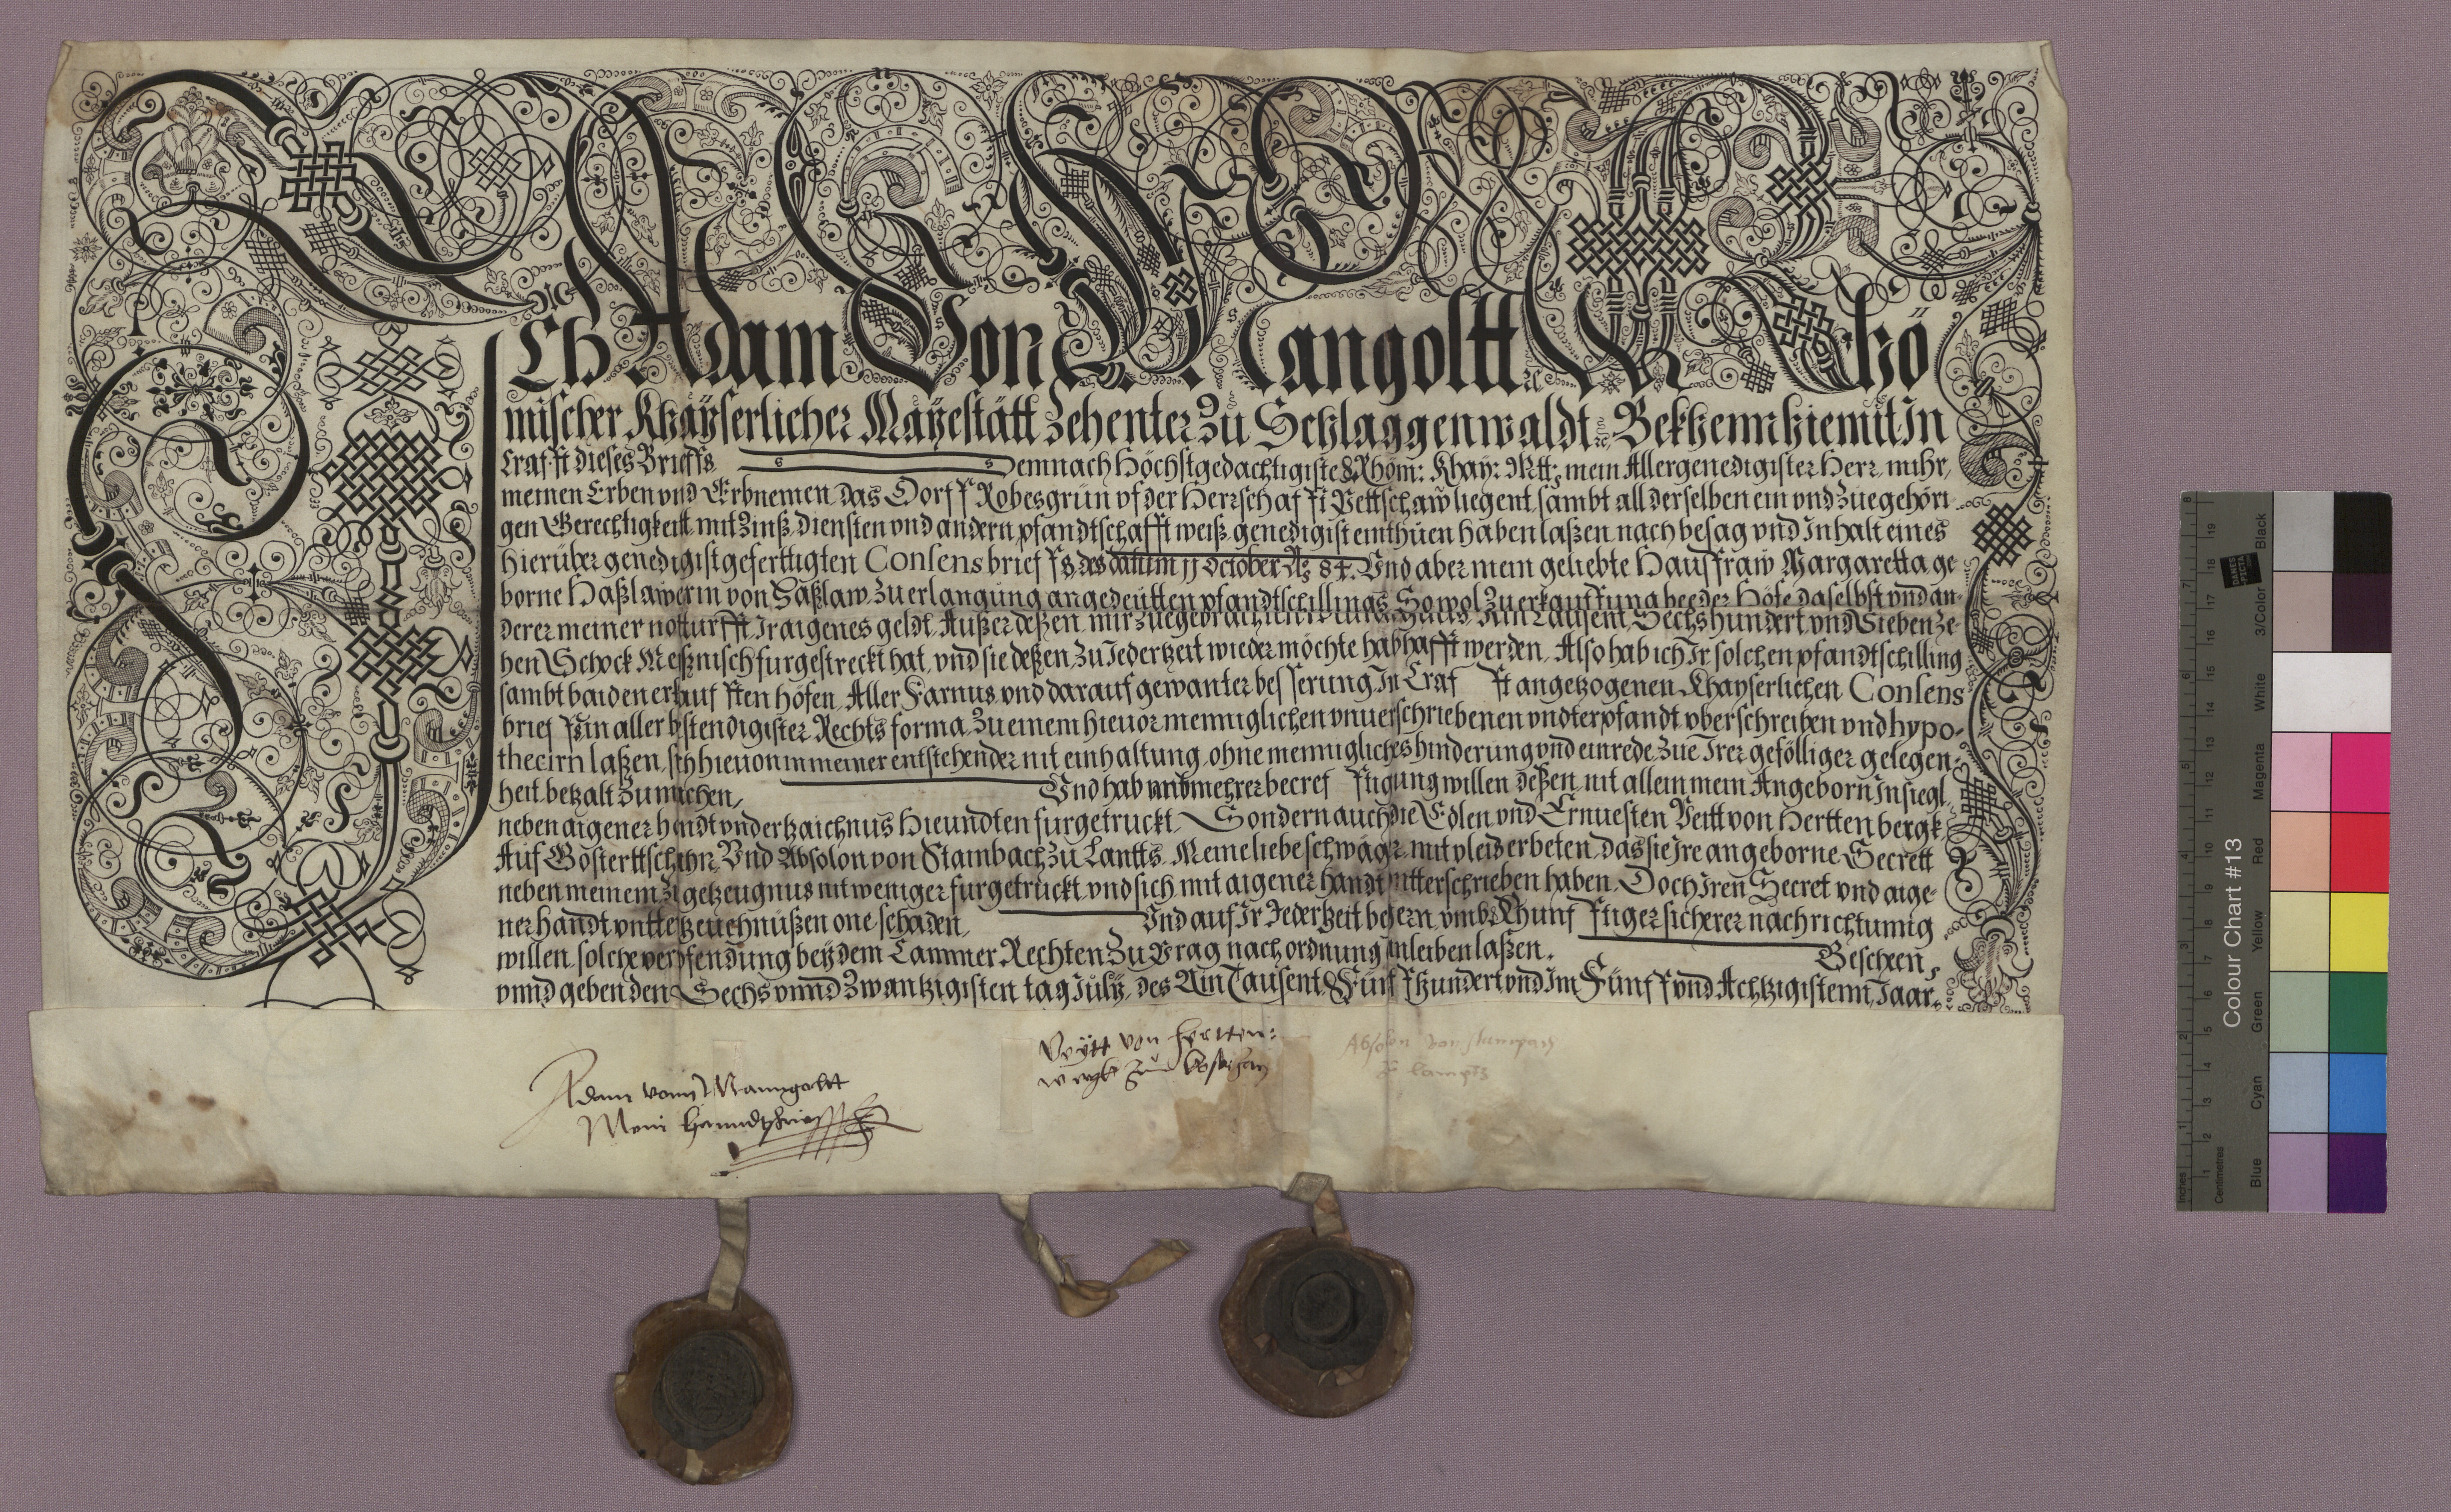 Ich Adam Von Mangoltt Rhö
mischer Khaÿserlicher Maÿestätt Zehenter Zu Schlaggenwaldt Bekhenn hiemit In
Crafft dieses Brieffs emnach Höchstgedachtigiste Rhöm: Khaÿ: Mtt: mein Allergenedigister Herr, mihr,
meinen Erben vnd Erbnemen, das Dorff Robesgrün vf der Herrschafft Pettschaw liegent, sambt all derselben ein vnd Zuegehöri
gen Gerechtigkeitt, mit Zinß, Diensten vnd andern, pfandtschafft weiß, genedigist einthuen haben laßen, nach besag vnd Inhalt eines
hierüber genedigist geferttigten Consensbrieffs, des datum 11 October Ao 84. Vnd aber mein geliebte Hausfraw Margaretta ge
borne Haßlawerin von Haßlaw, Zu erlangung angedeütten pfandtschillings, Sowol Zu erkauffung beeder Höfe daselbst vnd an-
derer meiner notturfft, Ir aigenes geldt, Außer deßen, mir Zuegebrachten Ain Tausent, Sechshundert, vnd Siebenze-
hen Schock Meißnisch furgestreckt hat, vnd sie deßen, Zu Jederzeit wieder möchte habhafft werden, Also hab ich Ir solchen pfandtschilling
sambt baiden erkaufften höfen, Aller Farnus, vnd darauf gewanter besserung, In Crafft angezogenen Khayserlichen Consens
brieffs in aller bstendigister Rechts forma, Zu einem hieuor menniglichen vnuerschriebenen vndterpfandt, vberschreiben vnd hypo-
thecirn laßen, sich hieuon in meiner entstehender nit einhaltung, ohne menniglichs hinderung vnd einrede, Zue Irer gefölliger gelegen-
heit, bezalt Zu machen, Vnd hab vmb mehrer becrefftigung willen deßen, nit allein mein Angeborn Insiegl,
neben aigener handt vnderzaichnus hieundten furgetruckt, Sondern auch die Edlen, vnd Ernuesten Veitt von Herttenbergk
Auf Vnd Absolon von Stambach, Zu Lantts, Meine liebe schwäger, mit vleis erbeten, das sie Ire angeborne Secrett
neben meinem Zu getzeugnus nit weniger furgetruckt, vnd sich mit aigener handt vntterschrieben haben, Doch Iren Secret vnd aige-
ner handt one schaden, Vnd auf Ir Jederzeit begern, vmb Khunfftiger sicherer nachrichtunng
willen, solche verpfendung beÿ dem Cammer Rechten Zu Prag nach ordnung einleiben laßen. Bescheen,
vnnd geben den Sechs vnnd Zwantzigisten tag Julÿ, des Ain Tausent Fünffhundert vnd Im Fünff vnd Achtzigistenn Jaar.
Adam vonn Manngoltt
Mein hanndtschriefft
Veÿtt von Hertten:
wergk Zu
Absolon von stampach
Zu lampts
Colour Chart #13
Blue Cyan Green Yellow Red Magenta White 3/Color Black
Inches
Centimetres
DANES PICTA